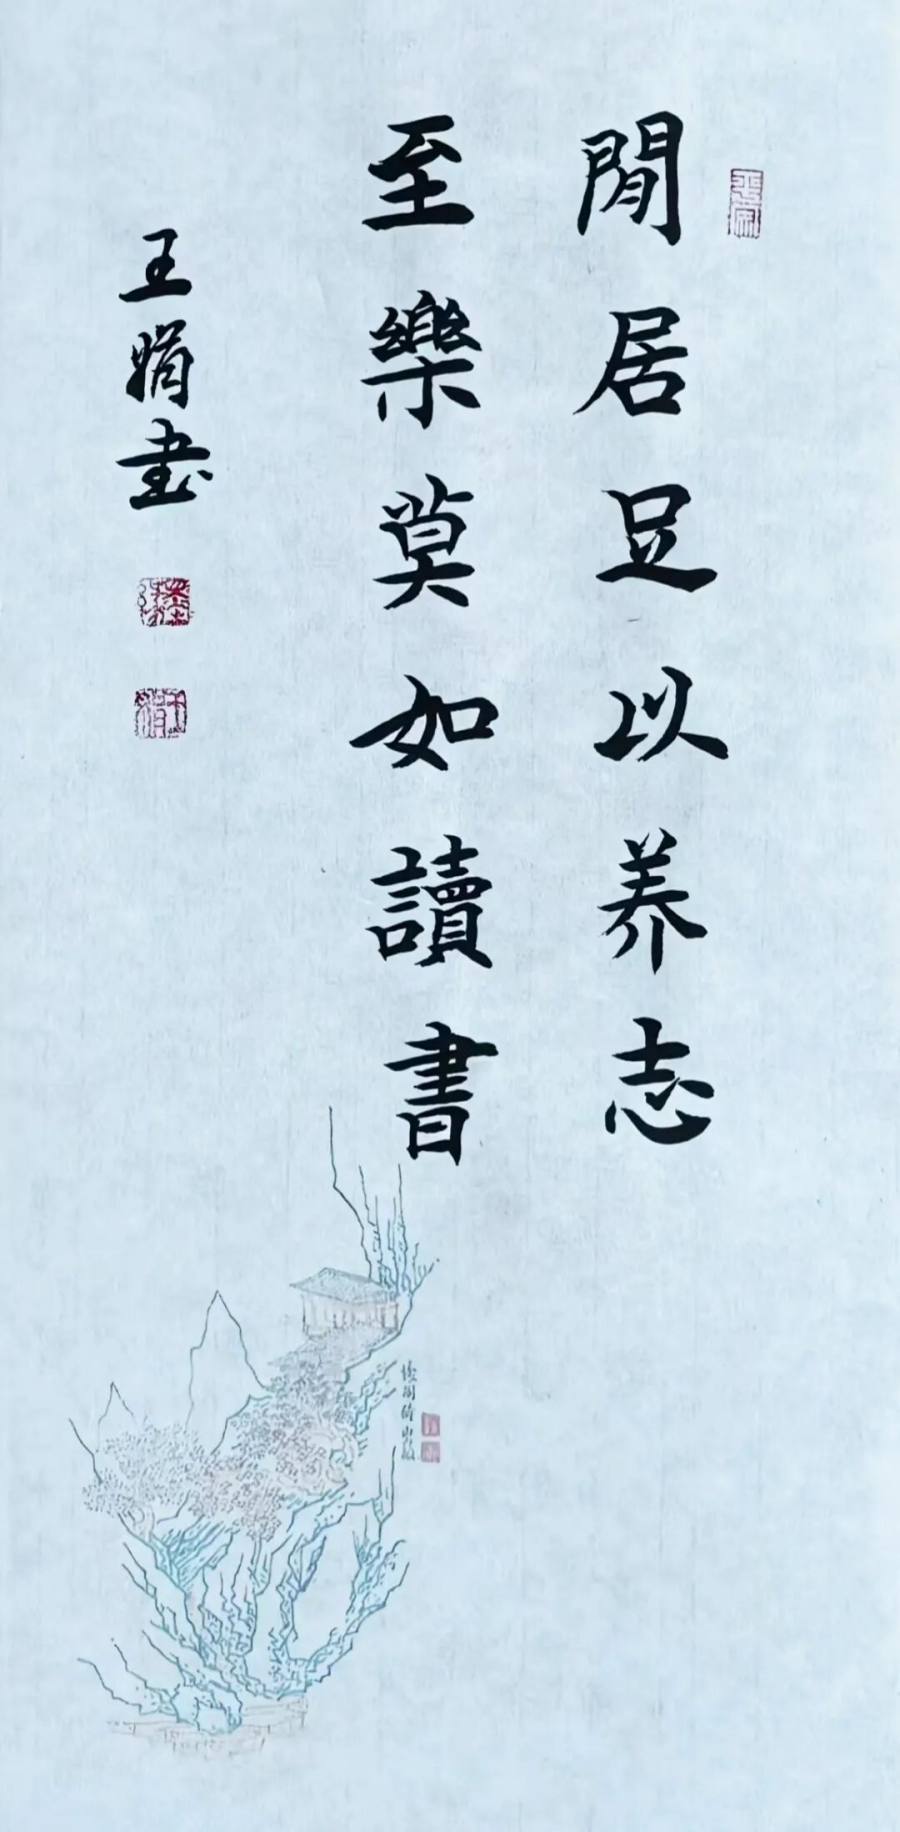 閒居足以养志
至樂莫如讀書
王娟書